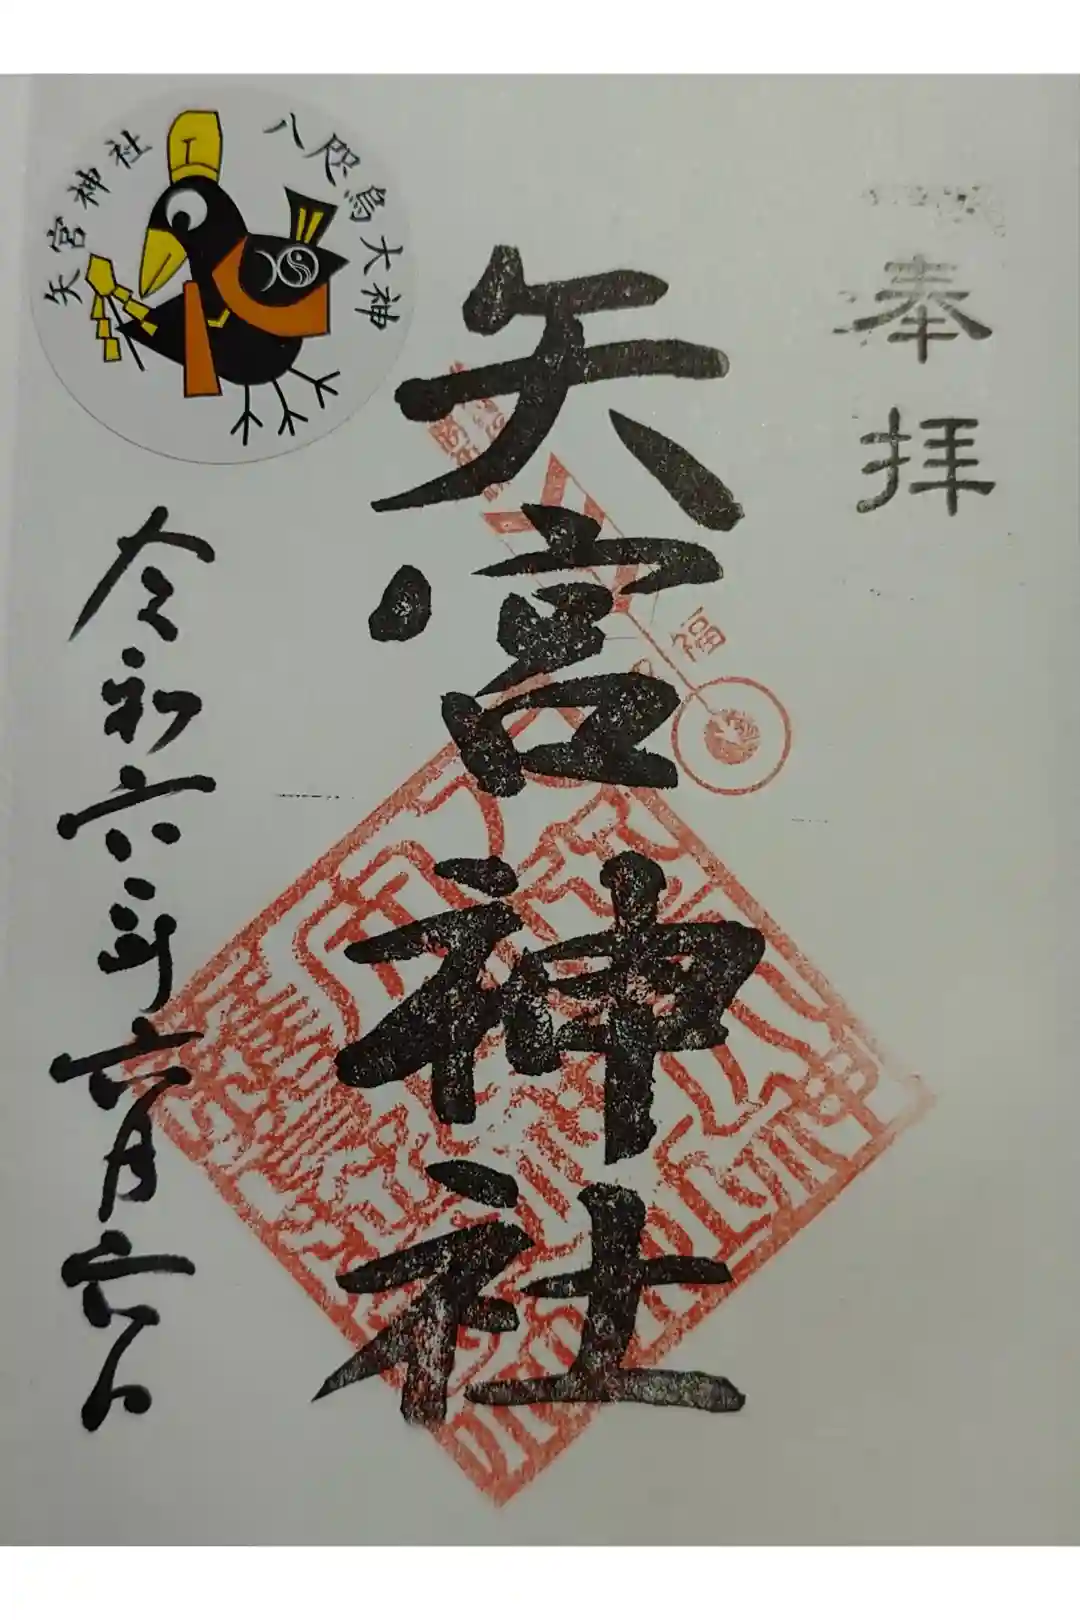 奉拝
矢宮神社
福
令和六年六月六日
矢宮神社
八咫烏大神